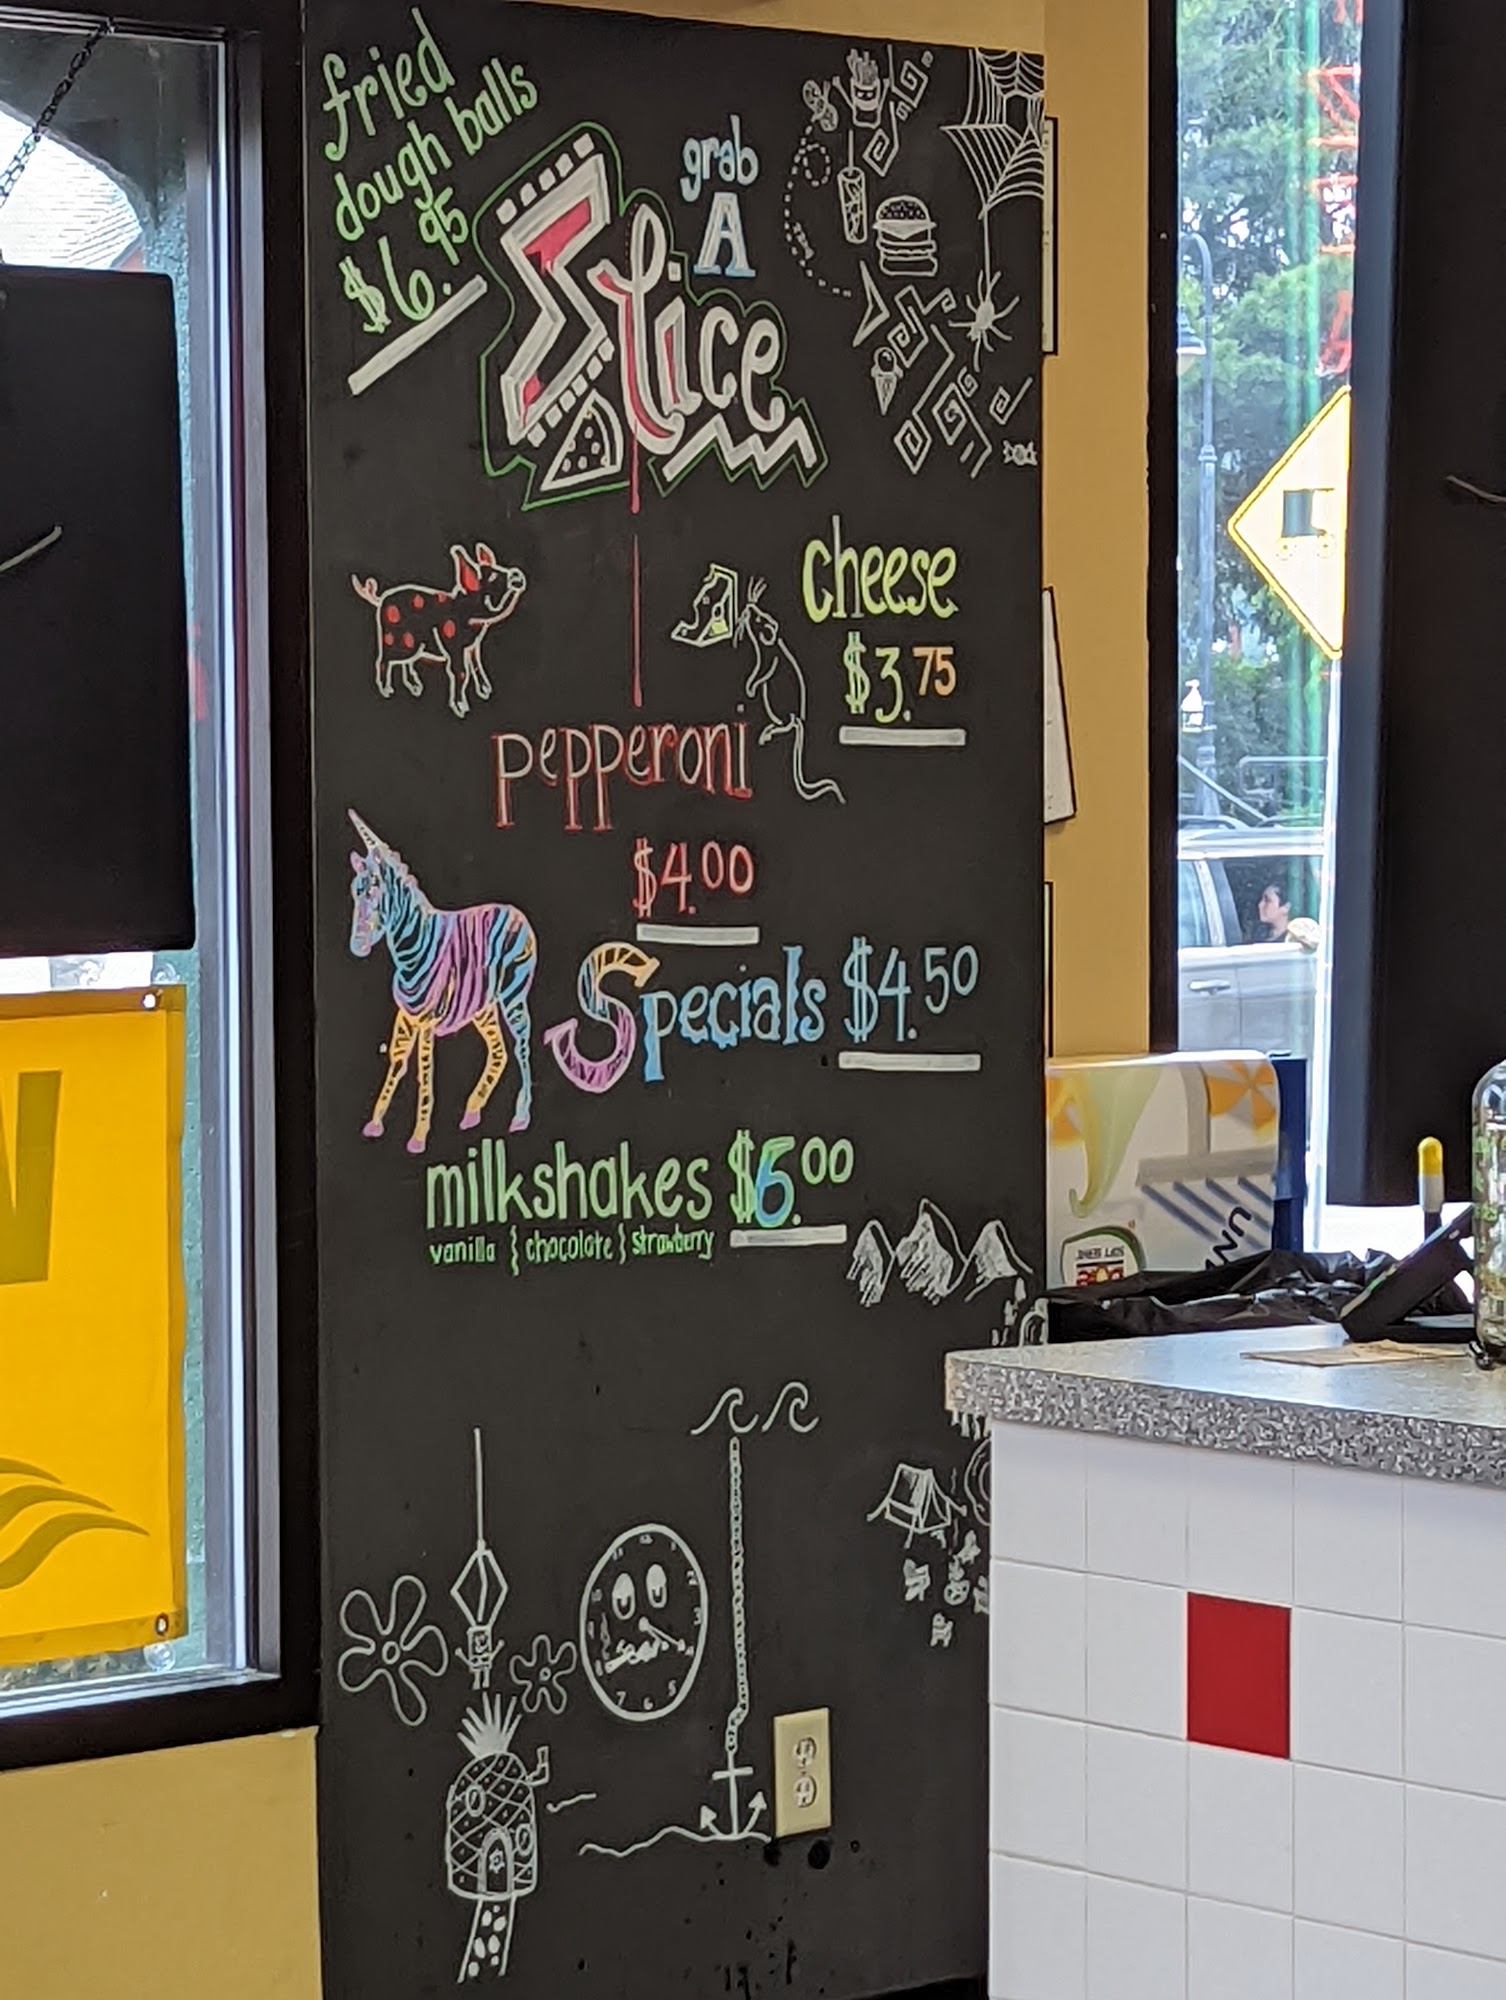 fried
dough balls
$6.95
grab
A
Slice
cheese
$3.75
pepperoni
$4.00
Specials $4.50
milkshakes $6.00
vanilla } chocolate } strawberry